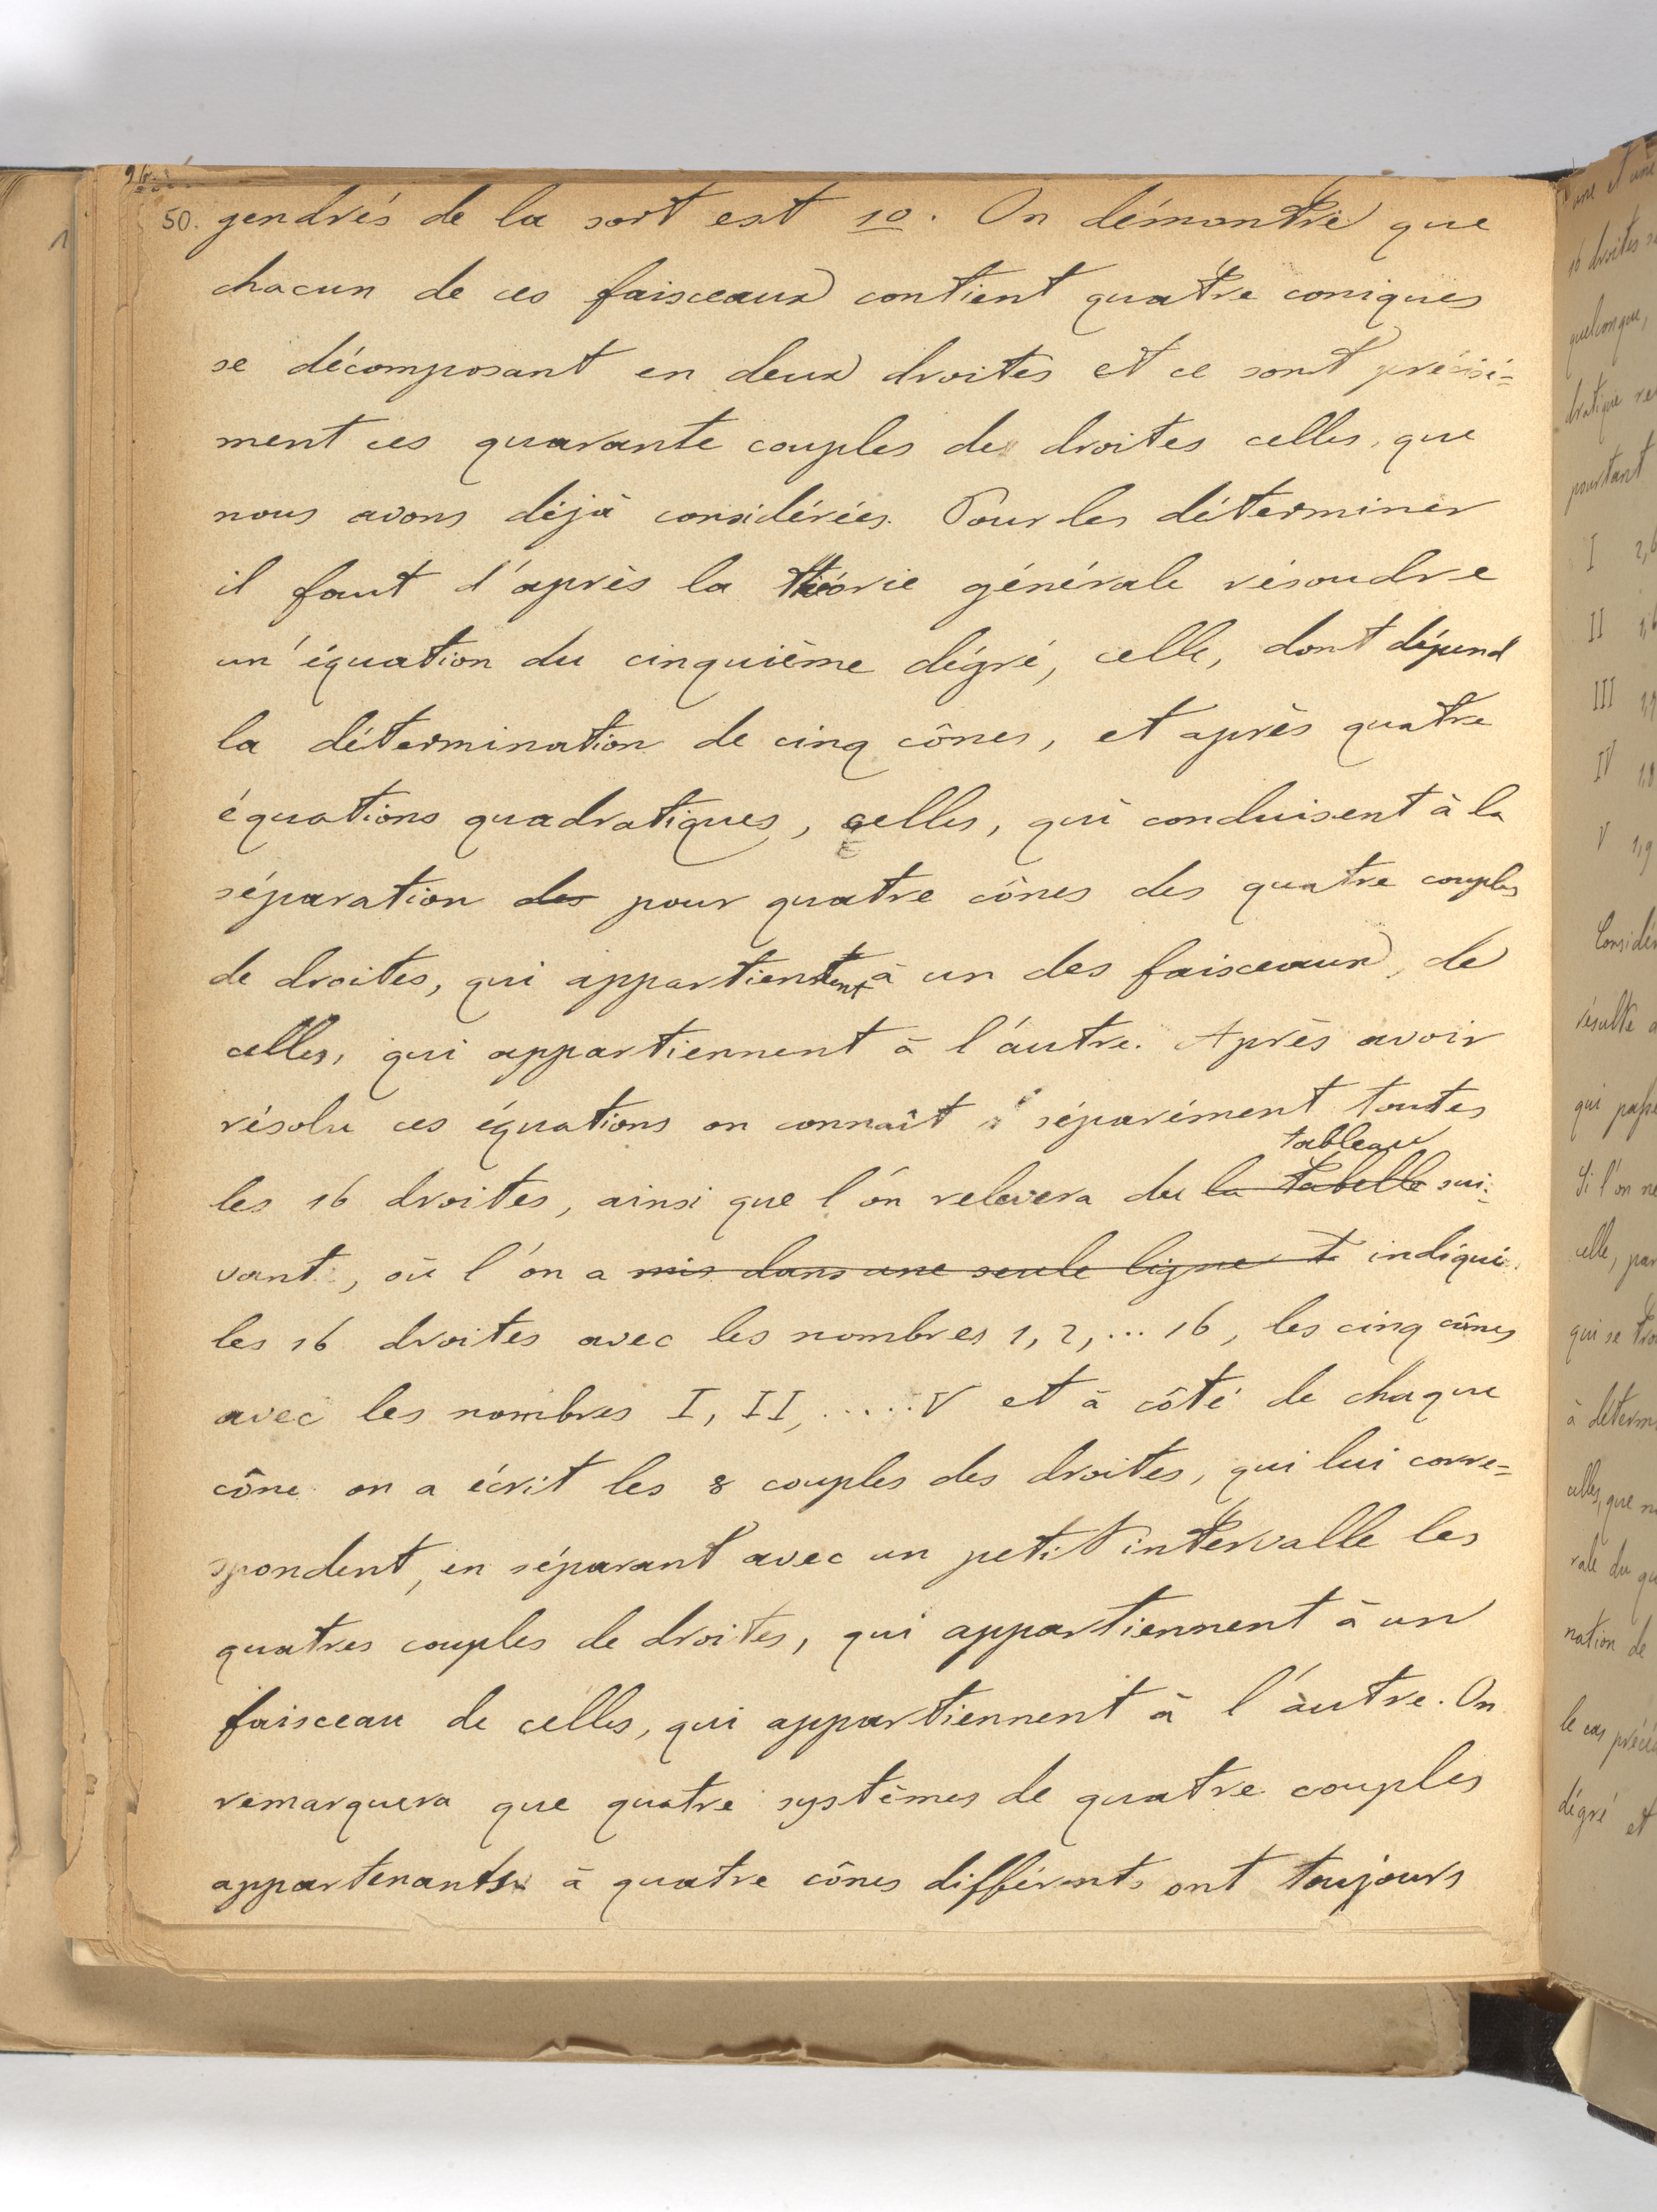 50. gendrés de la sort est 10. On démontre que
chacun de ces faisceaux contient quatre coniques
se décomposant en deux droites et ce sont précisé=
ment ces quarante couples de droites celles, que
nous avons déjà considérées. Pour les déterminer
il faut d'après la théorie générale résoudre
un' équation du cinquième dégré, celle, dont dépend
la détermination de cinq cônes, et après quatre
équations quadratiques, celles, qui conduisent à la
séparation des pour quatre cônes des quatre couples
de droites, qui appartiennent à un des faisceaux, de
celles, qui appartiennent à l'autre. Après avoir
résolu ces équations on connaît séparément toutes
tableau
les 16 droites, ainsi que l'on relevera du la tabelle sui=
vant, où l'on a mis dans une seule ligne indiqué
les 16 droites avec les nombres 1, 2, ... 16, les cinq cônes
avec les nombres I, II, ..... V et à côté de chaque
cône on a écrit les 8 couples des droites, qui lui corre=
spondent, en séparant avec un petit intervalle les
quatres couples de droites, qui appartiennent à un
faisceau de celles, qui appartiennent à l'autre. On
remarquera que quatre systèmes de quatre couples
appartenants à quatre cônes différents ont toujours
une et une
16 droites
quelconque,
pourtant
I 2,6
II
III
IV
V 1,9
résulte
Si l'on ne
celle, par
qui se
à déterm
celles, que
nation de
dégré et